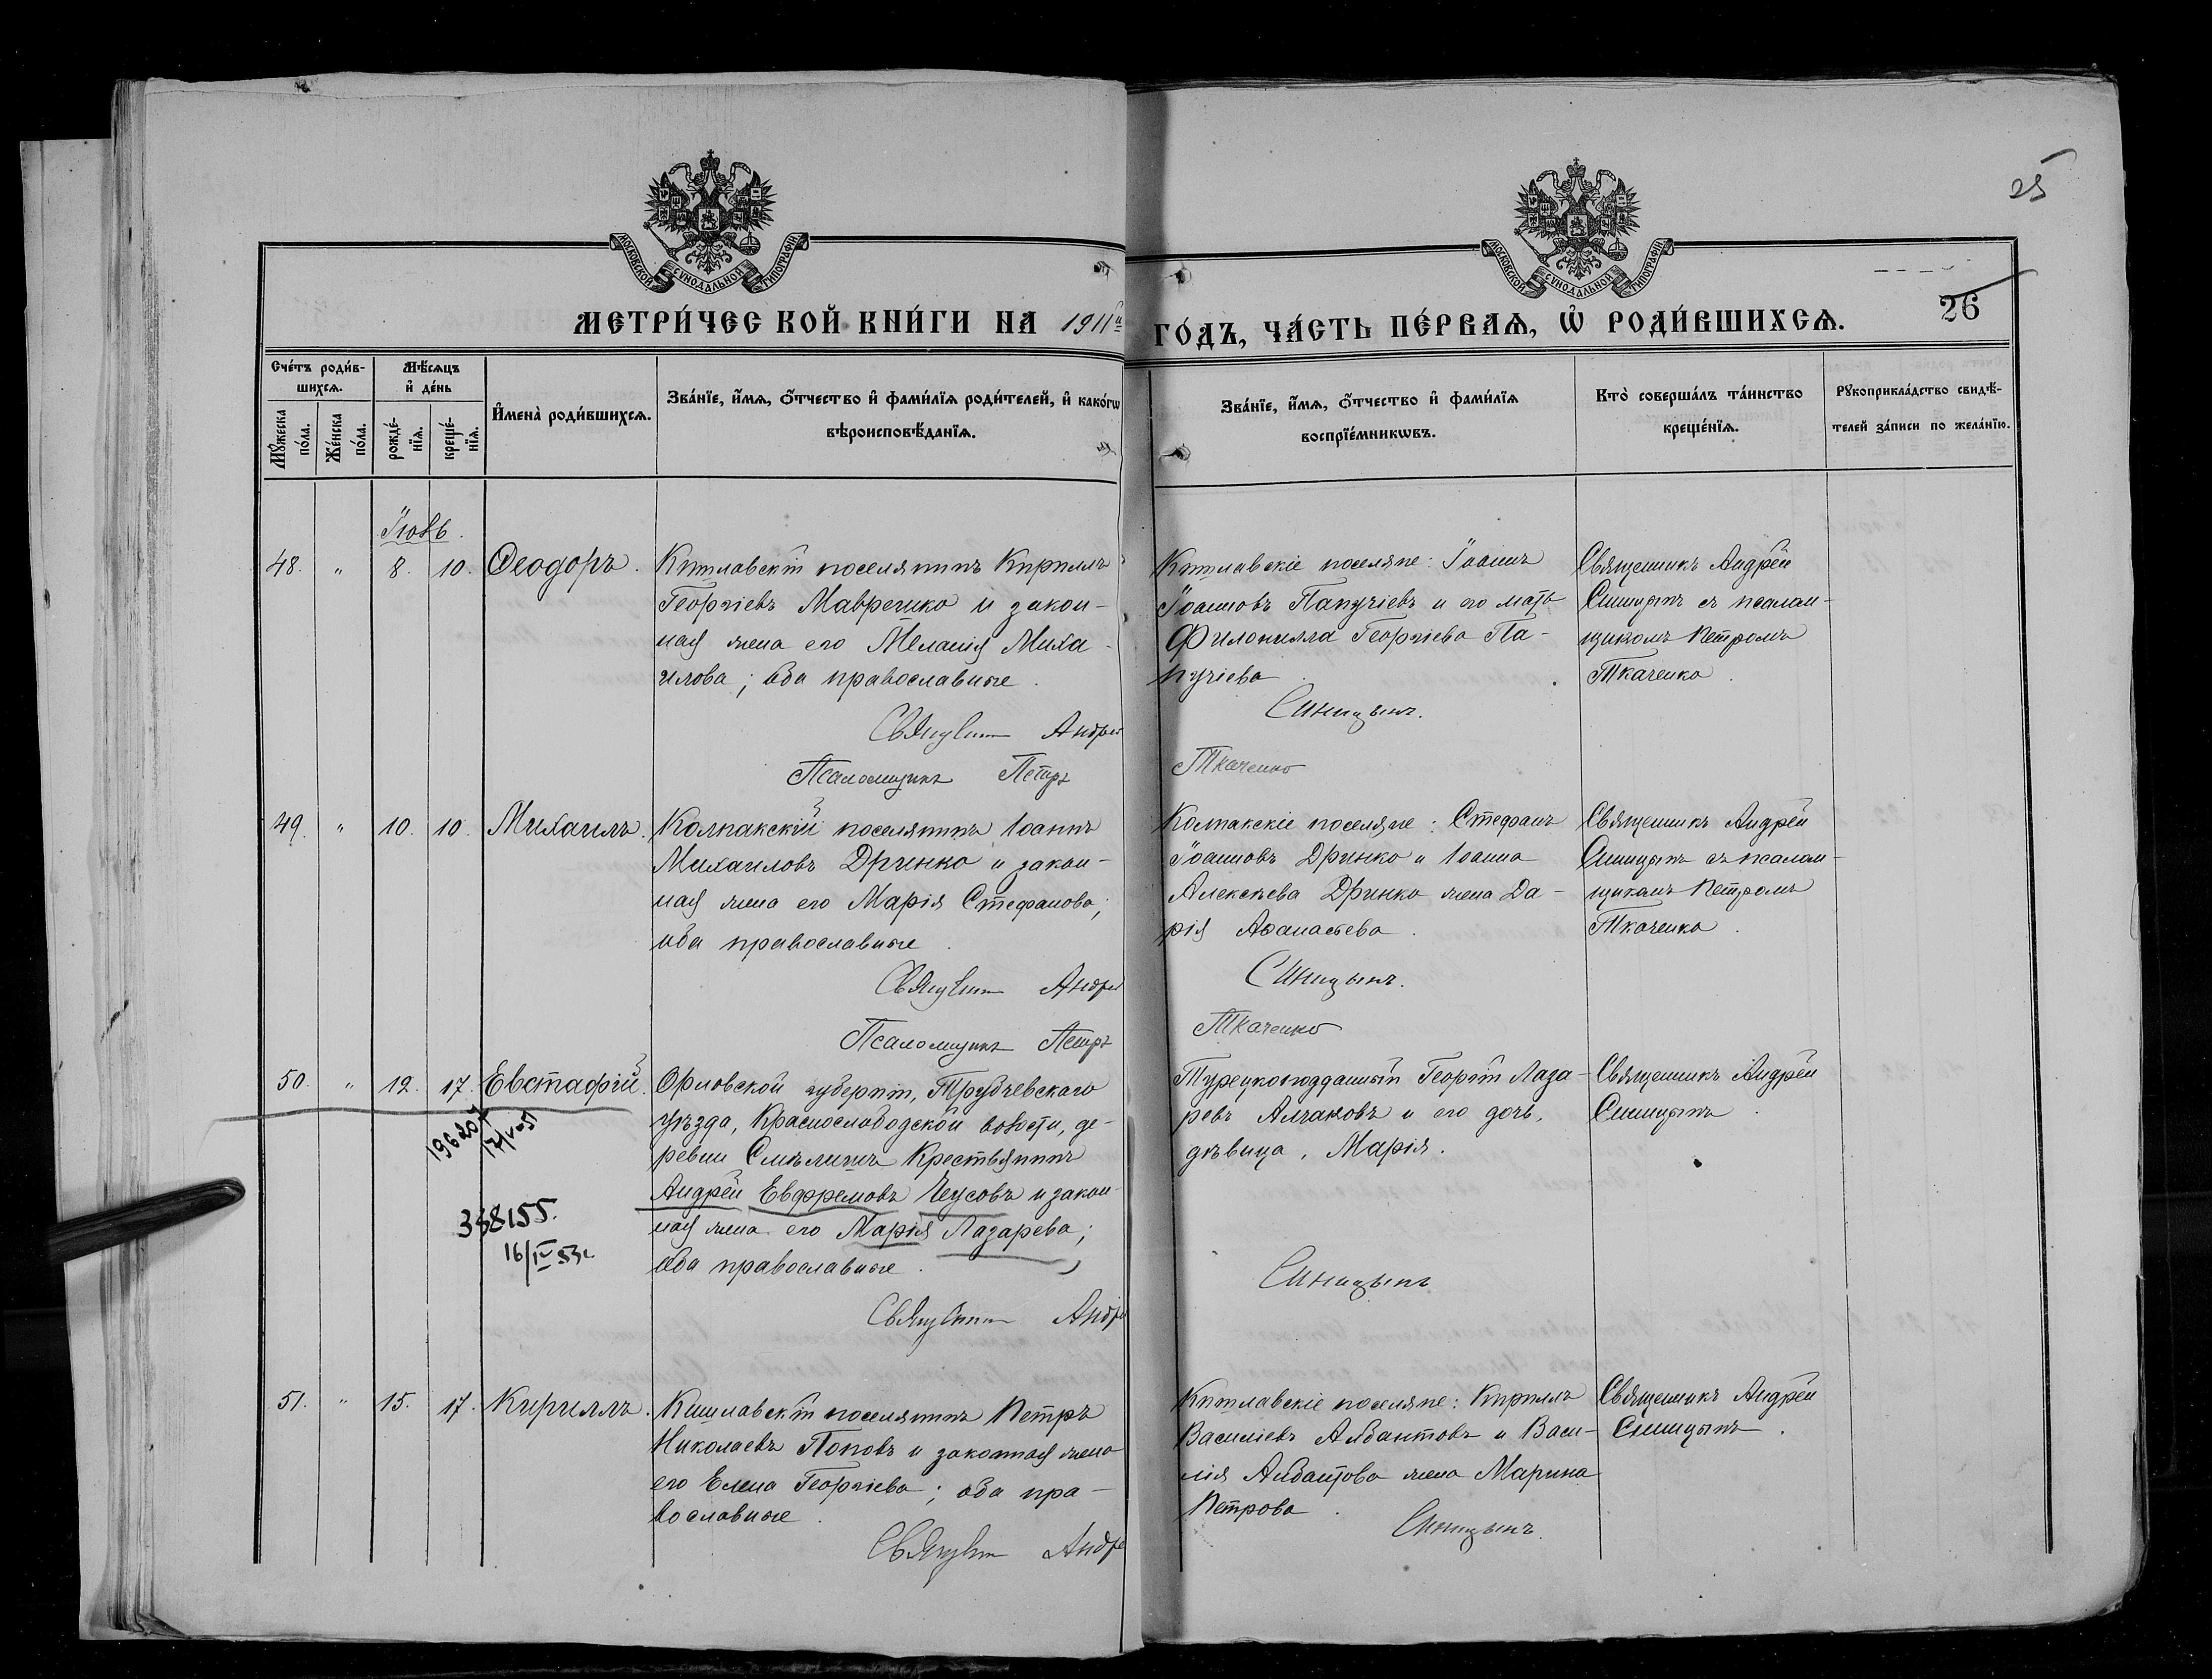 25
МОСКОВСКОЙ СѴНОДАЛЬНОЙ ТИПОГРАФІИ
МОСКОВСКОЙ СѴНОДАЛЬНОЙ ТИПОГРАФІИ
МЕТРИ́ЧЕСКОЙ КНИ́ГИ НА 1911й
ГО́ДЪ, ЧА́СТЬ ПЕ́РВАѦ, Ѽ РОДИ́ВШИХСѦ.
26
Сче́тъ роди́в-
шихсѧ.
Мꙋ́жеска по́ла.
Же́нска по́ла.
Мѣ́сѧцъ
и҆ де́нь
рожде́-
нїѧ.
креще́-
нїѧ.
И҆мена̀ роди́вшихсѧ.
Зва́нїе, и҆́мѧ, ѻ҆́тчество и҆ фами́лїѧ роди́телей, и҆ како́гѡ
вѣроисповѣ́данїѧ.
Зва́нїе, и҆́мѧ, ѻ҆́тчество и҆ фами́лїѧ
воспрїе́мникѡвъ.
Кто̀ соверша́лъ та́инство
креще́нїѧ.
Рꙋкоприкла́дство свидѣ́-
телей за́писи по жела́нїю.
Іюль.
48. " 8. 10. Ѳеодоръ.
Кишлавскій поселянинъ Кириллъ
Георгіевъ Мавренко и закон-
ная жена его Меланія Миха-
илова; оба православные.
Священникъ Андрей
Псаломщикъ Петръ
Кишлавскіе поселяне: Іоаннъ
Іоанновъ Папучіевъ и его мать
Филонилла Георгіева Па-
пучіева.
Синицынъ.
Ткаченко
Священникъ Андрей
Синицынъ съ псалом-
щикомъ Петромъ
Ткаченко.
49. " 10. 10. Михаилъ.
Колпакскій поселянинъ Іоаннъ
Михаиловъ Дринко и закон-
ная жена его Марія Стефанова;
оба православные.
Священникъ Андрей
Псаломщикъ Петръ
Колпакскіе поселяне: Стефанъ
Іоанновъ Дринко и Іоанна
Алексѣева Дринко жена Да-
рія Аѳанасьева.
Синицынъ.
Ткаченко
Священникъ Андрей
Синицынъ съ псалом-
щикомъ Петромъ
Ткаченко.
50. " 12. 17. Евстафій.
196207
17/V-51
388155.
16/IV 53г.
Орловской губерніи, Трубчевскаго
уѣзда, Краснослободской волости, де-
ревни Смѣлижъ Крестьянинъ
Андрей Евфремовъ Чеусовъ и закон-
ная жена его Марія Лазарева;
оба православные.
Священникъ Андрей
Турецкоподданный Георгій Лаза-
ревъ Алчаковъ и его дочь,
дѣвица, Марія.
Синицынъ
Священникъ Андрей
Синицынъ.
51. " 15. 17. Кириллъ.
Кишлавскій поселянинъ Петръ
Николаевъ Поповъ и законная жена
его Елена Георгіева; оба пра-
вославные.
Священникъ Андрей
Кишлавскіе поселяне: Кириллъ
Василіевъ Албантовъ и Васи-
лія Албантова жена Марина
Петрова.
Синицынъ.
Священникъ Андрей
Синицынъ.